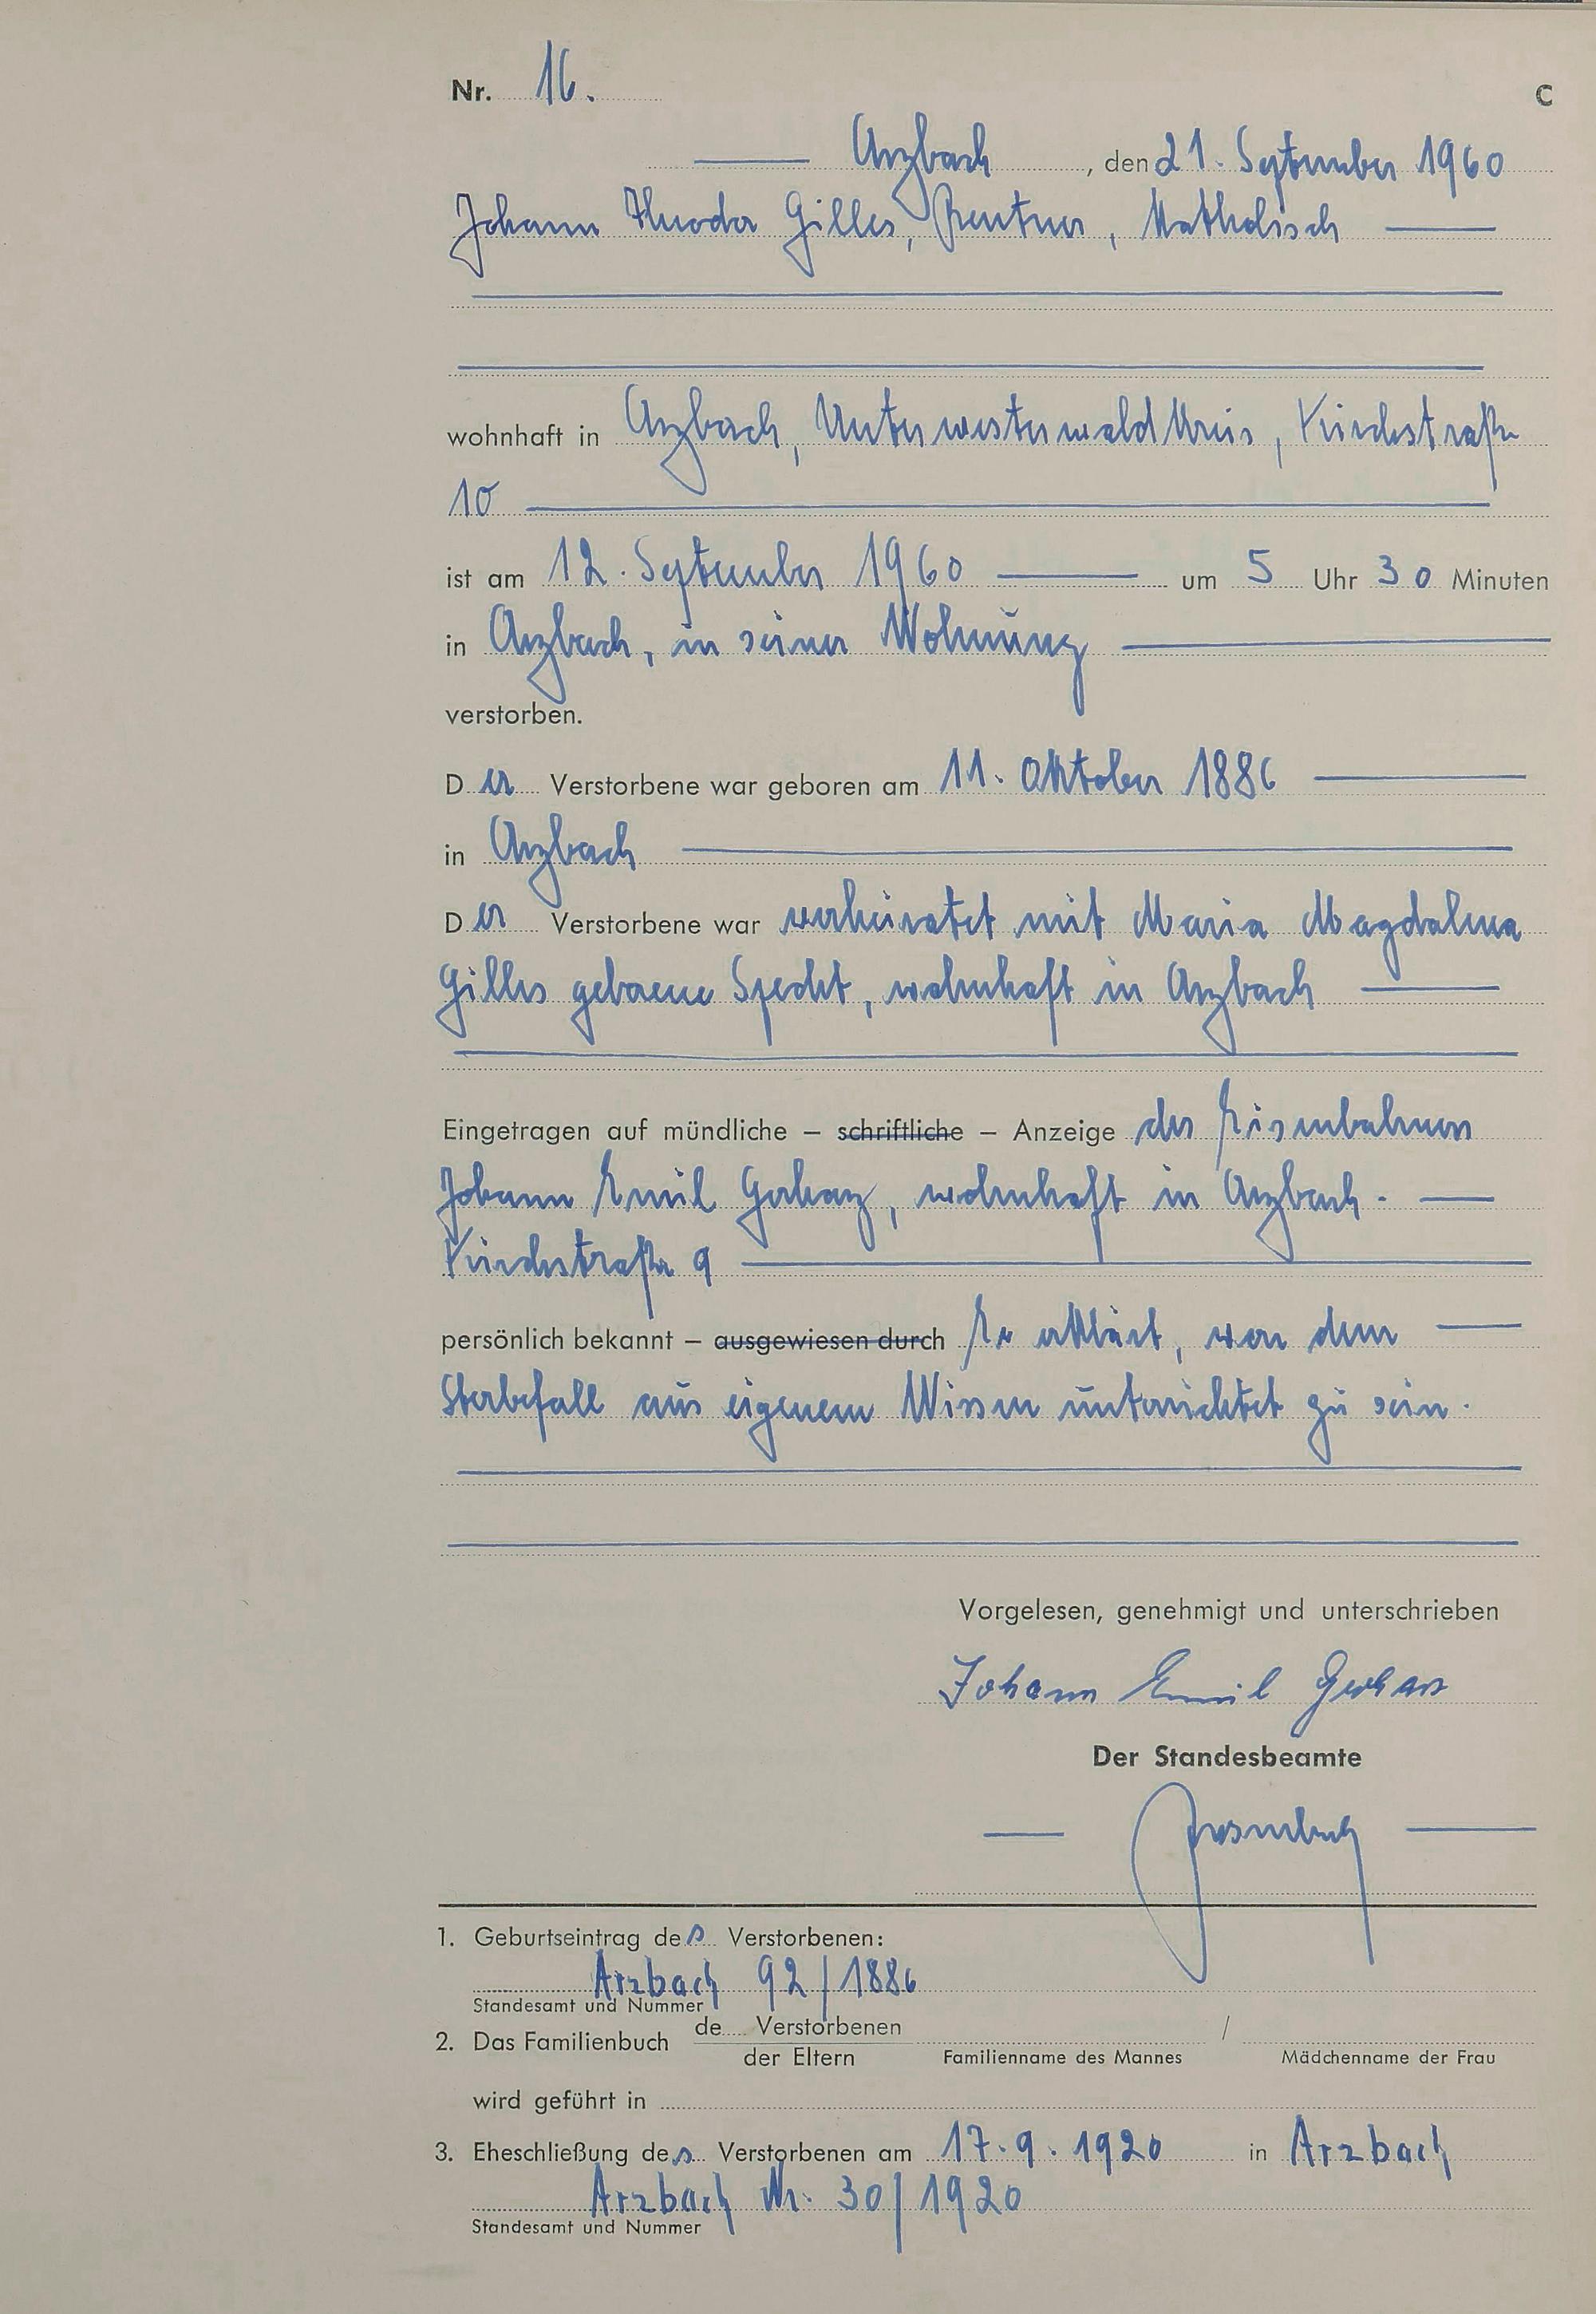 Nr. 16. C
Arzbach, den 21. September 1960
Johann Theodor Gilles, Rentner, katholisch
wohnhaft in Arzbach, Unterwesterwaldkreis, Kirchstraße
10
ist am 12. September 1960 um 5 Uhr 30 Minuten
in Arzbach, in seiner Wohnung
verstorben.
Der Verstorbene war geboren am 11. Oktober 1886
in Arzbach
Der Verstorbene war verheiratet mit Maria Magdalena
Gilles geborene Specht, wohnhaft in Arzbach
Eingetragen auf mündliche – schriftliche – Anzeige des Eisenbahners
Johann Emil Gerharz, wohnhaft in Arzbach.
Kirchstraße 9
persönlich bekannt – ausgewiesen durch Er erklärt, von dem
Sterbefall aus eigenem Wissen unterrichtet zu sein.
Vorgelesen, genehmigt und unterschrieben
Johann Emil Gerharz
Der Standesbeamte
1. Geburtseintrag des Verstorbenen:
Arzbach 92/1886
Standesamt und Nummer
de Verstorbenen /
2. Das Familienbuch
der Eltern Familienname des Mannes Mädchenname der Frau
wird geführt in
3. Eheschließung des Verstorbenen am 17.9.1920 in Arzbach
Arzbach Nr. 30/1920
Standesamt und Nummer